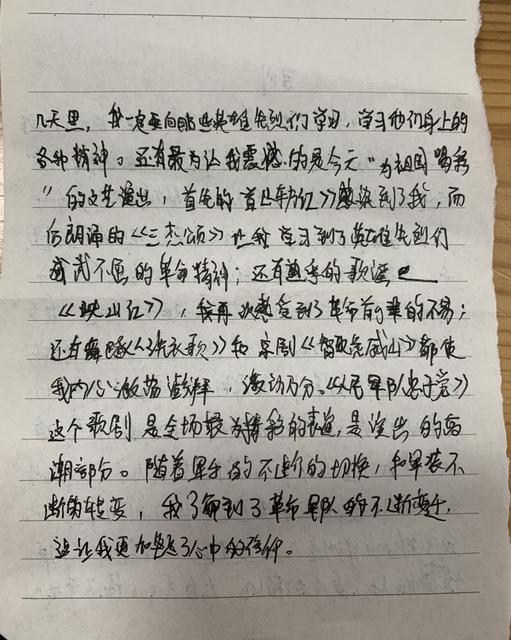 几天里，我一定要向那些英雄先烈们学习，学习他们身上的
各种精神。还有最为让我震撼的是今天"为祖国喝彩
"的文艺演出，首先的首《》感染到了我，而
后朗诵的《三杰颂》让我学习到了英雄先烈们
威武不屈的革命精神，还有熟悉的歌谣
《映山红》，我再次感受到了革命前辈的不易；
还有舞蹈《洗衣歌》和京剧《智取虎威山》都使
我内心激荡澎湃，激动万分。《人民军队忠于党》
这个歌剧是全场最为精彩的表演，是演出的高
潮部分。随着军乐的不断的切换，和军装不
断的转变，我了解到了革命军队的不断变迁，
这让我更加坚定了心中的信仰。